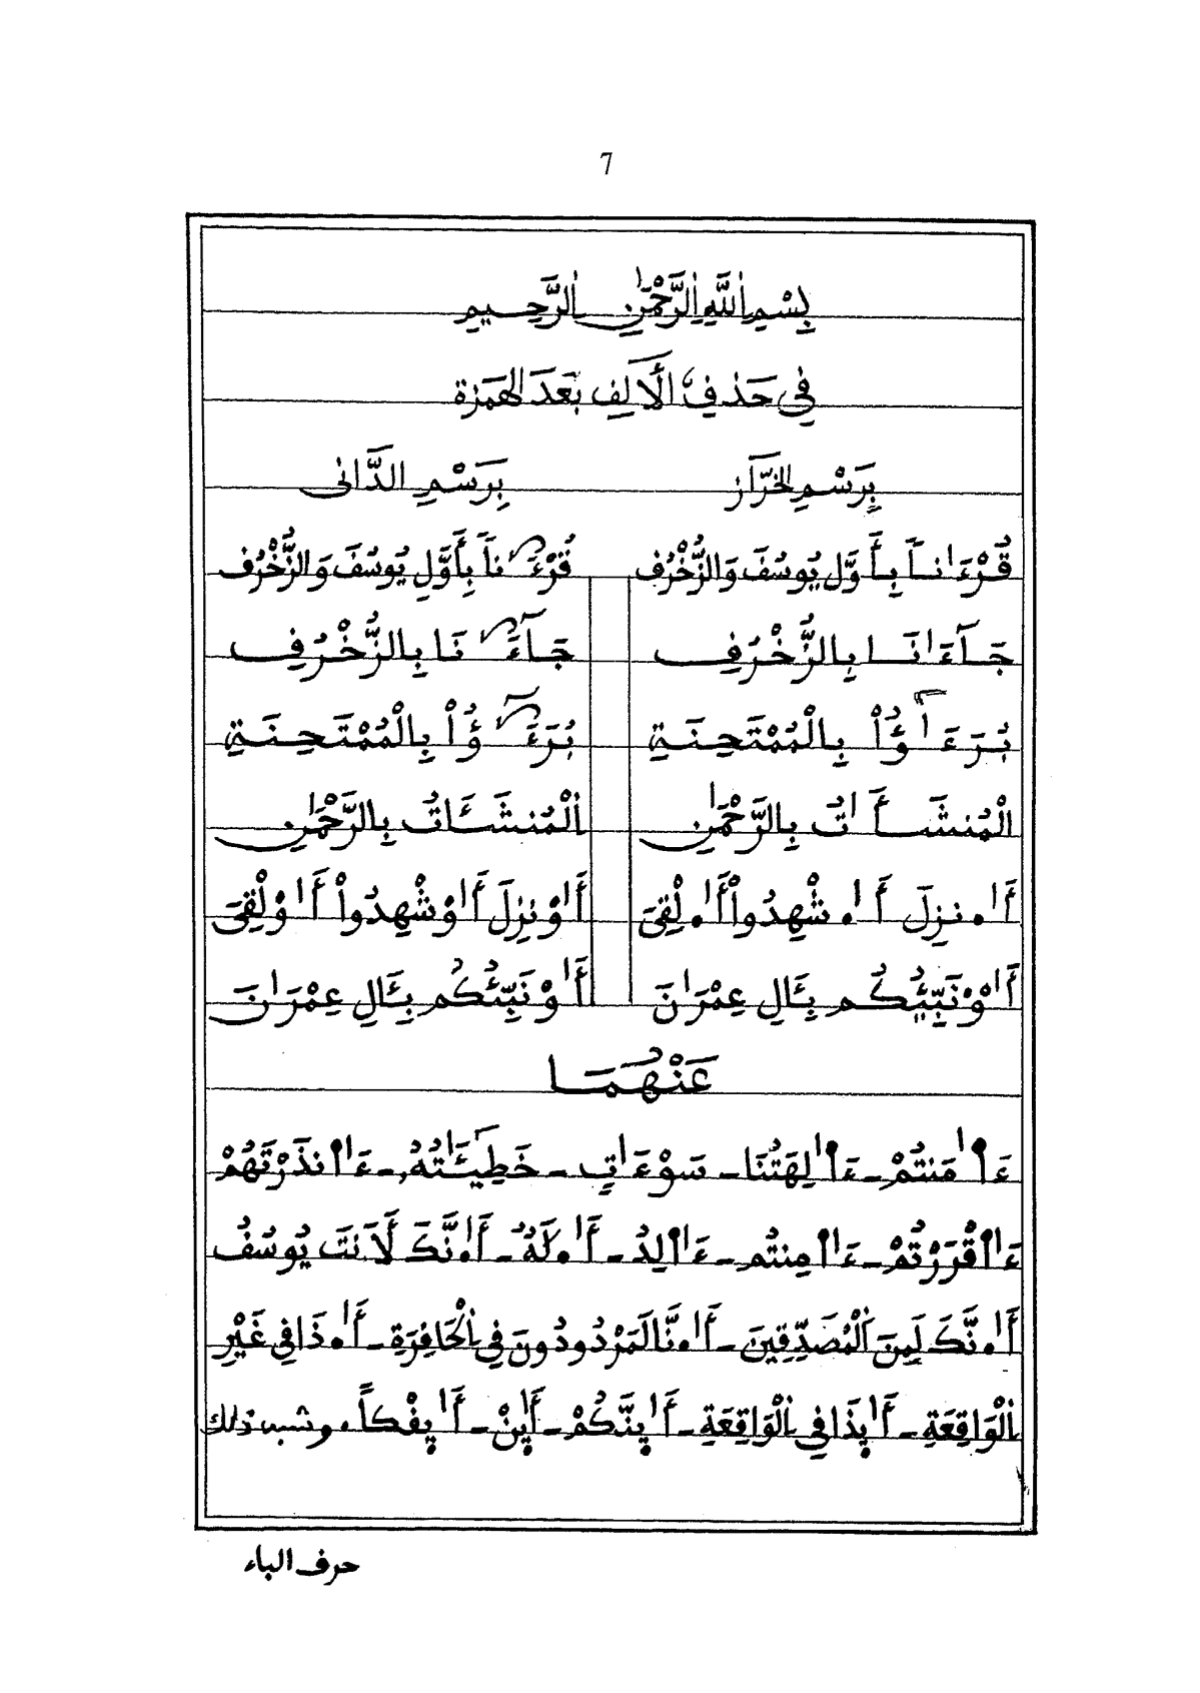 7
بِسْمِ اللَّهِ الرَّحْمَٰنِ الرَّحِيمِ
فِي حَذْفِ الْأَلِفِ بَعْدَ الهَمْزَة
بِرَسْمِ الخَرَّازِ بِرَسْمِ الدَّانِى
قُرْءَٰناً بِأَوَّلِ يُوسُفَ وَالزُّخْرُف قُرْءَ نَاً بِأَوَّلِ يُوسُفَ وَالزُّخْرُفِ
جَآءَٰنَا بِالزُّخْرُفِ جَآءَ نَا بِالزُّخْرُفِ
بُرَءَٰٓؤُاْ بِالْمُمْتَحِنَةِ بُرَءَ ؤُاْ بِالْمُمْتَحِنَةِ
الْمُنشَـأَٰتُ بِالرَّحْمَٰنِ الْمُنشَـَٔاتُ بِالرَّحْمَٰنِ
أَٰ۟نزِلَ أَٰ۟شْهِدُواْ أَٰ۟لْقِىَ أَٰوْنزِلَ أَٰوْشْهِدُواْ أَٰوْلْقِىَ
أَٰوْنَبِّئُكُم بِـَٔالِ عِمْرَٰنَ أَٰوْنَبِّئُكُم بِـَٔالِ عِمْرَٰنَ
عَنْهُمَـا
ءَاٰمَنتُمْ - ءَاٰلِهَتُنَا - سَوْءَٰتِ - خَطِيـَٔـٰتُهُۥ - ءَآنذَرْتَهُمْ
ءَآقْرَرْتُمْ - ءَآمِنتُم - ءَآلِدُ - أَٰ۟لَهٌ - أَٰ۟نَّكَ لَأَنتَ يُوسُفُ
أَٰ۟نَّكَ لَمِنَ الْمُصَدِّقِينَ - أَٰ۟نَّا لَمَرْدُودُونَ فِي الْحَافِرَةِ - أَٰ۟ذَا فِي غَيْرِ
الْوَاقِعَةِ - أَٰيِذَا فِي الْوَاقِعَةِ - أَٰيِنَّكُمْ - أَٰيِنْ - أَٰيِفْكاً. وشبه ذلك
حرف الباء